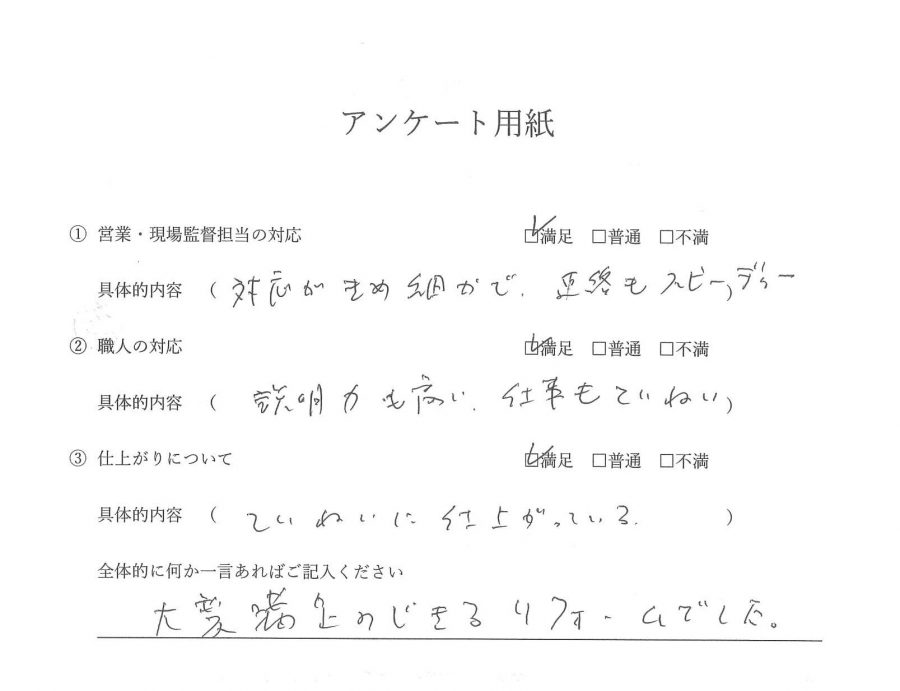 アンケート用紙
① 営業・現場監督担当の対応 ☑満足 □普通 □不満
具体的内容 （ 対応がきめ細かで、連絡もスピーディー ）
② 職人の対応 ☑満足 □普通 □不満
具体的内容 （ 説明力も高い、仕事もていねい ）
③ 仕上がりについて ☑満足 □普通 □不満
具体的内容 （ ていねいに仕上がっている。 ）
全体的に何か一言あればご記入ください
大変満足のできるリフォームでした。